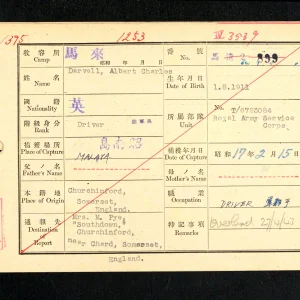 1375 1253 III 3539
收容所 Camp 馬來 番號 No. 399
昭和 年 月 日
姓名 Name Darvell, Albert Charles 生年月日 Date of Birth 1.8.1911
國籍 Nationality 英 所屬部隊 Unit T/
Royal Army Service
Corps.
階級身分 Rank Driver
捕獲場所 Place of Capture MALAYA 捕獲年月日 Date of Capture 昭和 17年 2月 15日
父ノ名 Father's Name 母ノ名 Mother's Name
本籍地 Place of Origin Churchinford,
Somerset,
England.
職業 Occupation DRIVER
通報先 Destination of Report Mrs. M. Pye,
"Southdown",
Churchinford,
near Chard, Somerset,
England.
特記事項 Remarks Overland